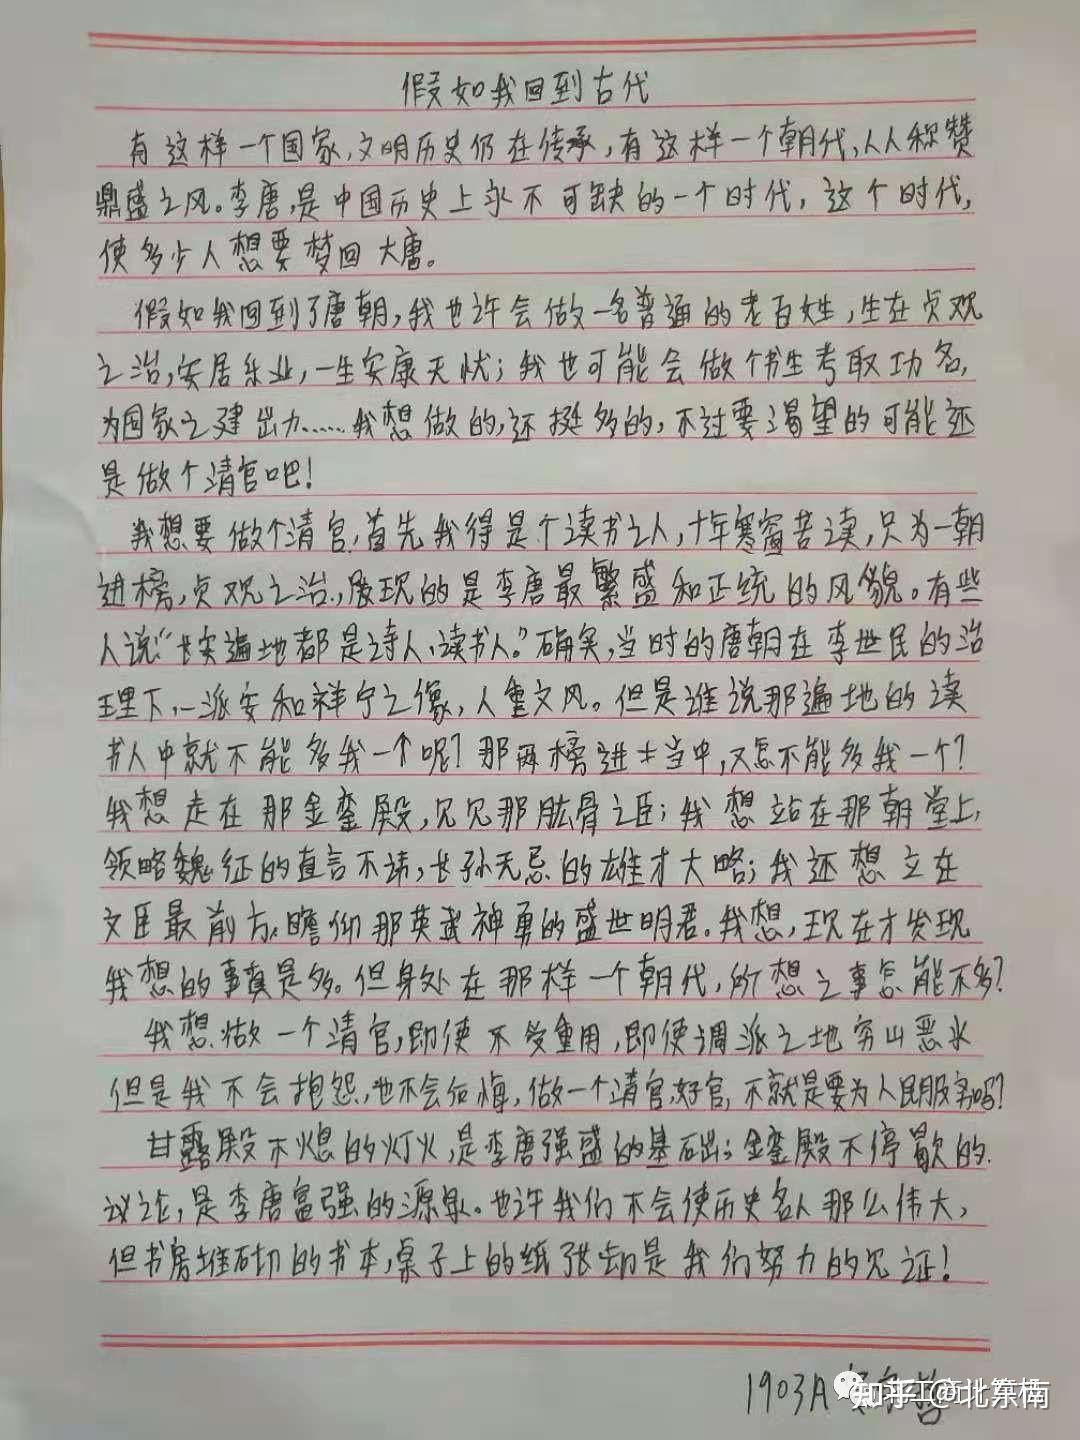 假如我回到古代
有这样一个国家,文明历史仍在传承,有这样一个朝代,人人称赞
鼎盛之风。李唐,是中国历史上永不可缺的一个时代,这个时代,
使多少人想要梦回大唐。
假如我回到了唐朝,我也许会做一名普通的老百姓,生在贞观
之治,安居乐业,一生安康无忧;我也可能会做个书生考取功名,
为国家之建出力……我想做的,还挺多的,不过要渴望的可能还
是做个清官吧!
我想要做个清官,首先我得是个读书之人,十年寒窗苦读,只为一朝
进榜,贞观之治,展现的是李唐最繁盛和正统的风貌。有些
人说:“长安遍地都是诗人、读书人。”确实,当时的唐朝在李世民的治
理下,一派安和祥宁之像,人重文风。但是谁说那遍地的读
书人中就不能多我一个呢?那两榜进士当中,又怎不能多我一个?
我想走在那金銮殿,见见那肱骨之臣;我想站在那朝堂上,
领略魏征的直言不讳,长孙无忌的雄才大略;我还想立在
文臣最前方,瞻仰那英武神勇的盛世明君。我想,现在才发现
我想的事真是多。但身处在那样一个朝代,所想之事怎能不多?
我想做一个清官,即使不受重用,即使调派之地穷山恶水
但是我不会抱怨,也不会后悔,做一个清官,好官,不就是要为人民服务吗?
甘露殿不熄的灯火,是李唐强盛的基础;金銮殿不停歇的
议论,是李唐富强的源泉。也许我们不会使历史名人那么伟大,
但书房堆砌的书本,桌子上的纸张却是我们努力的见证!
1903A
知乎 @北东南